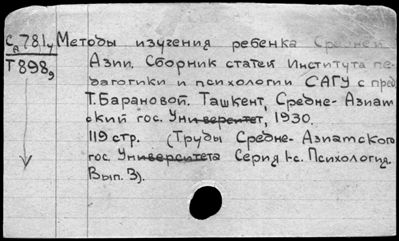 Са 781у Методы изучения ребенка Средней
Т898,9 Азии. Сборник статей Института пе-
дагогики и психологии САГУ с пред
Т. Барановой. Ташкент, Средне-Азиат
ский гос. Университет, 1930.
119 стр. (Труды Средне-Азиатского
гос. Университета Серия I-с. Психология.
Вып. 3).